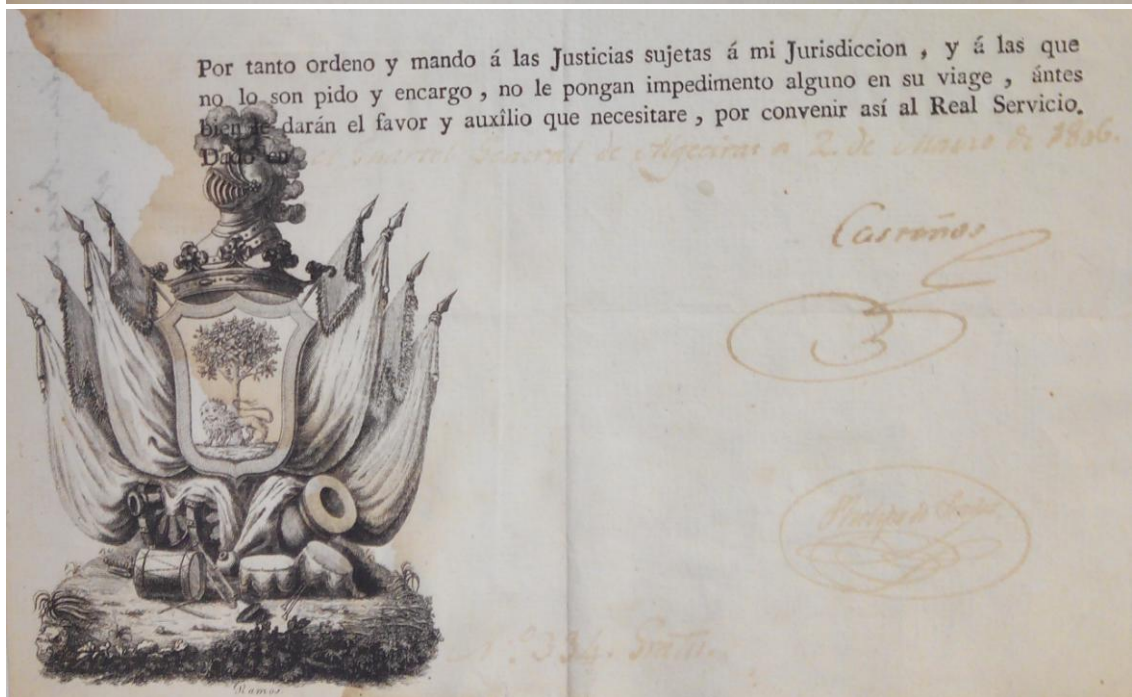 Por tanto ordeno y mando á las Justicias sujetas á mi Jurisdiccion , y á las que
no lo son pido y encargo , no le pongan impedimento alguno en su viage , ántes
bien le darán el favor y auxîlio que necesitare , por convenir así al Real Servicio.
Dado en el Quartel General de Algeciras a 2 de Marzo de 1806.
Castaños
N.º 334. Gratis.
Ramos